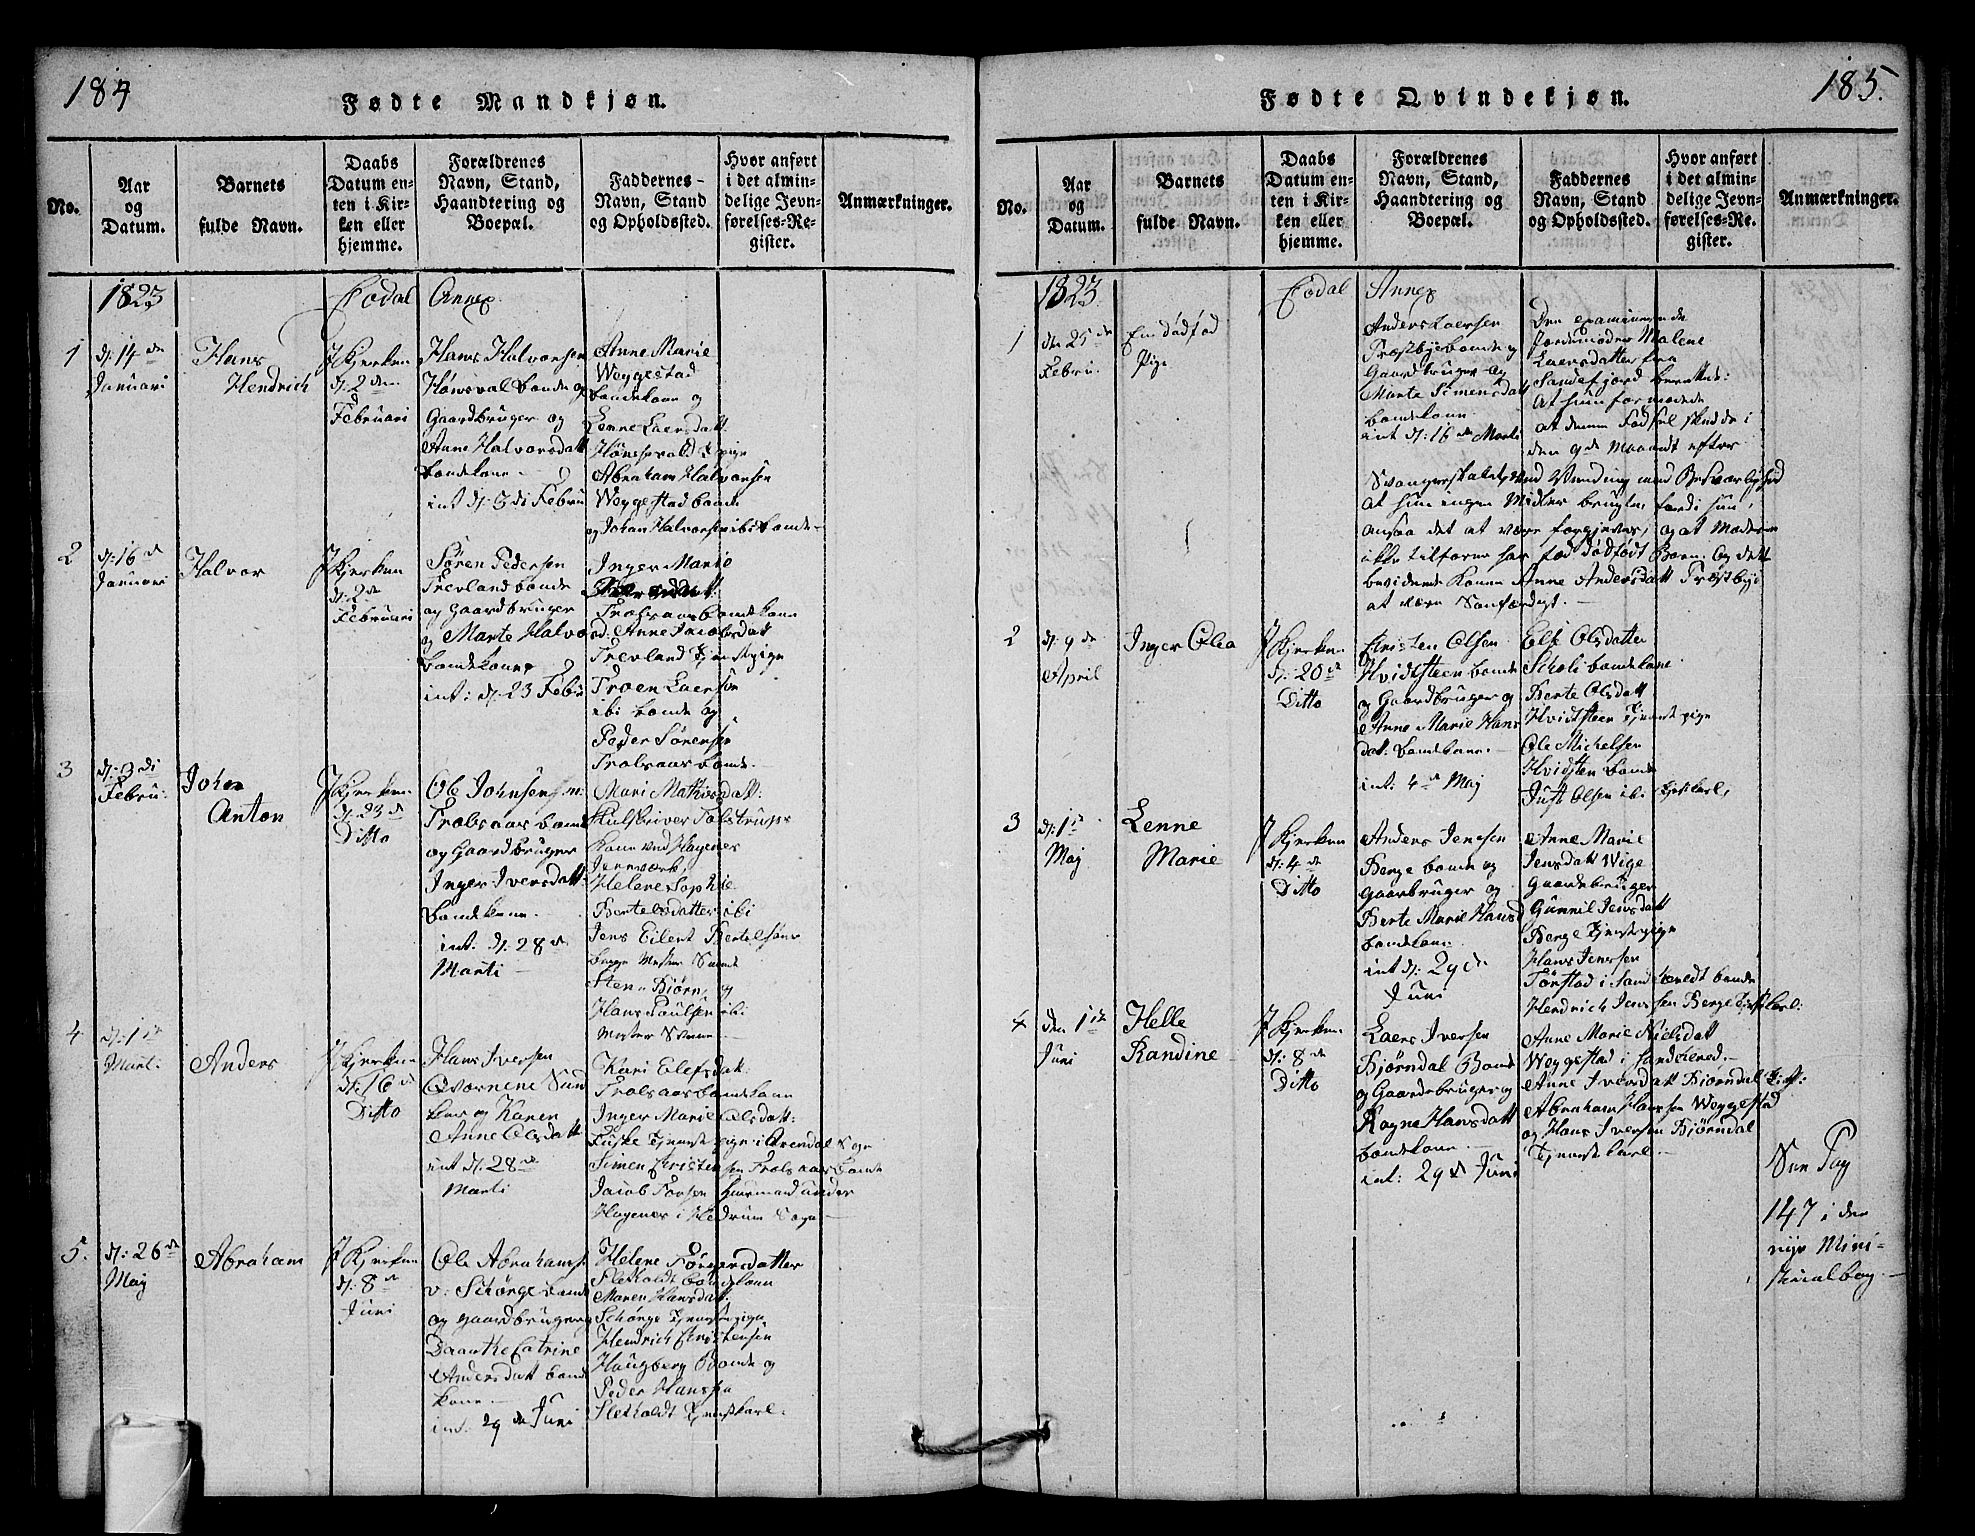 184
Fødte Mandkjøn.
No.
Aar
og
Datum.
Barnets
fulde Navn.
Daabs
Datum en-
ten i Kir-
ken eller
hjemme.
Forældrenes
Navn, Stand,
Haandtering og
Boepæl.
Faddernes
Navn, Stand
og Opholdssted.
Hvor anført
i det almin-
delige Jevn-
førelses-Re-
gister.
Anmærkninger.
1823
Codal Annex
1
d: 14 de
Januari
Hans
Hendrich
J Kjerken
d: 2 den
Februari
Hans Halvorsen
Hønsval bonde og
Gaardbruger og
Anne Halvorsdatt
bondekone
int d: 3 di Febru
Anne Marie
Weggestad
bondekone og
Lenne Laersdatt
Hønsvald Pige
Abraham Halvorsen
Weggestad bonde
og Johan Halvorsen ibi bonde
2
d: 16 de
Januari
Halvor
J Kjerken
d: 2
Februari
Søren Pedersen
Trevland bonde
og Gaardbruger
og Marte Halvo
bondekone
int: d: 23 Febru
Inger Marie
Trolsaas bondekone
Anne Jacobsdatt
Trevland Tjenstpige
Troen Laerson
ibi bonde og
Peder Sørensen
Trolsaas bonde
3
d: 3 di
Febru:
Johan
Anton
J Kjerken
d: 23 d
Ditto
Ole Johnsen
Trolsaas bonde
og Gaardbruger
Inger Iversdatt
bondekone
int. d: 28 de
Marti
Mari Mathisdatt:
Kone ved Hagenes
Jernværk,
Helene Sophie
Bertelsdatter ibi
Jens Eilert Bertelsen
Sten Biørn, og
Hans Poulsen ibi
4
d: 1 ste
Marti
Anders
J Kjerken
d: 16 de
Ditto
Hans Iversen
Qværnene
og Karen
Anne Olsdatt
int d: 28 de
Marti
Kari Elefsdatt
Trolsaas bondekone
Inger Marie Olsdatt:
Fuske Tjenestepige i Arendal Sogn
Simen Cristensen Trolsaas bonde
Jacob Torsen Huusmand under
Hagenes i Hedrum Sogn
5.
d: 26 de
Maj
Abraham
J Kjerken
d: 8 de
Juni
Ole Abrahams
v: Schørge bonde
og gaardbruger og
Daarthe Catrine
Andersdatt bonde
kone
int: 29 de Juni
Helene Torgersdatter
Sletholdt bondekone
Maren Hansdatt:
Schørge Tjenstepige
Hendrich Cristensen
Haugberg Bonde og
Peder Hansen
Sletholdt Tjenstkarl.
185.
Fødte Qvindekjøn.
No.
Aar
og
Datum.
Barnets
fulde Navn.
Daabs
Datum en-
ten i Kir-
ken eller
hjemme.
Forældrenes
Navn, Stand,
Haandtering og
Boepæl.
Faddernes
Navn, Stand
og Opholdssted.
Hvor anført
i det almin-
delige Jevn-
førelses-Re-
gister.
Anmærkninger.
1823
Codal Annex
1
den 25 de
Febru.
En dødfød
Pige
Anders Laersen
Præstbye bonde og
Gaardbruger og
Marte Simensdatt
bondekone
int d: 16 de Marti
Den examinerende
Jordemoder Malene
Laersdatter fra
Sandefjord berettede:
At hun formodede
at denne Fødsel skeede i
den 9de Maanedt efter
Svangerskabet, med Vending med Besværlighed
At hun ingen Midler brugte, fordi hun
ansaae det at være forgjeves, og at Moderen
ikke tilforne har fød dødfødt Barn. Og dette
bevidnede Konen Anne Andersdatt Præstbye
at være Sanfærdigt.
2
d: 9 de
April
Inger Olea
J Kjerken
d: 20 de
Ditto
Cristen Olsen
Hvidtsteen bonde
og Gaardbruger og
Anne Marie Hans
datt: bondekone
int: 4 de Maj
Else Olsdatter
Scholi bondekone
Berte Olsdatt
Hvidtsteen Tjenestepige
Ole Michelsen
Hvidsten bonde
Just Olsen ibi
3
d: 1 ste
Maj
Lenne
Marie
J Kjerken
d: 4 de
Ditto
Anders Jensen
Berge bonde og
gaarbruger og
Berte Marie Hansd
bondekone
int d: 29 de
Juni
Anne Marie
Jensdatt Wige
Gaardebruger
Gunnil Jensdatt
Berge Tjenstepige
Hans Jensen
Tørstad i Sandeherredt bonde
Hendrich Jensen Berge Tjenstkarl:
4
den 1 ste
Juni
Helle
Randine
J Kjerken
d: 8 de
Ditto
Laers Iversen
Biørndal Bonde
og Gaardebruger og
Ragne Hansdatt
bondekone
int: 29 de Juni
Anne Marie Nielsdatt
Weggestad i Sandeherred.
Anne Iversdatt Biørndal
Abraham Hansen Weggestad
og Hans Iversen Biørndal
Tjenstekarl.
See Pag
147 i den
nye Mini=
sterialbog.